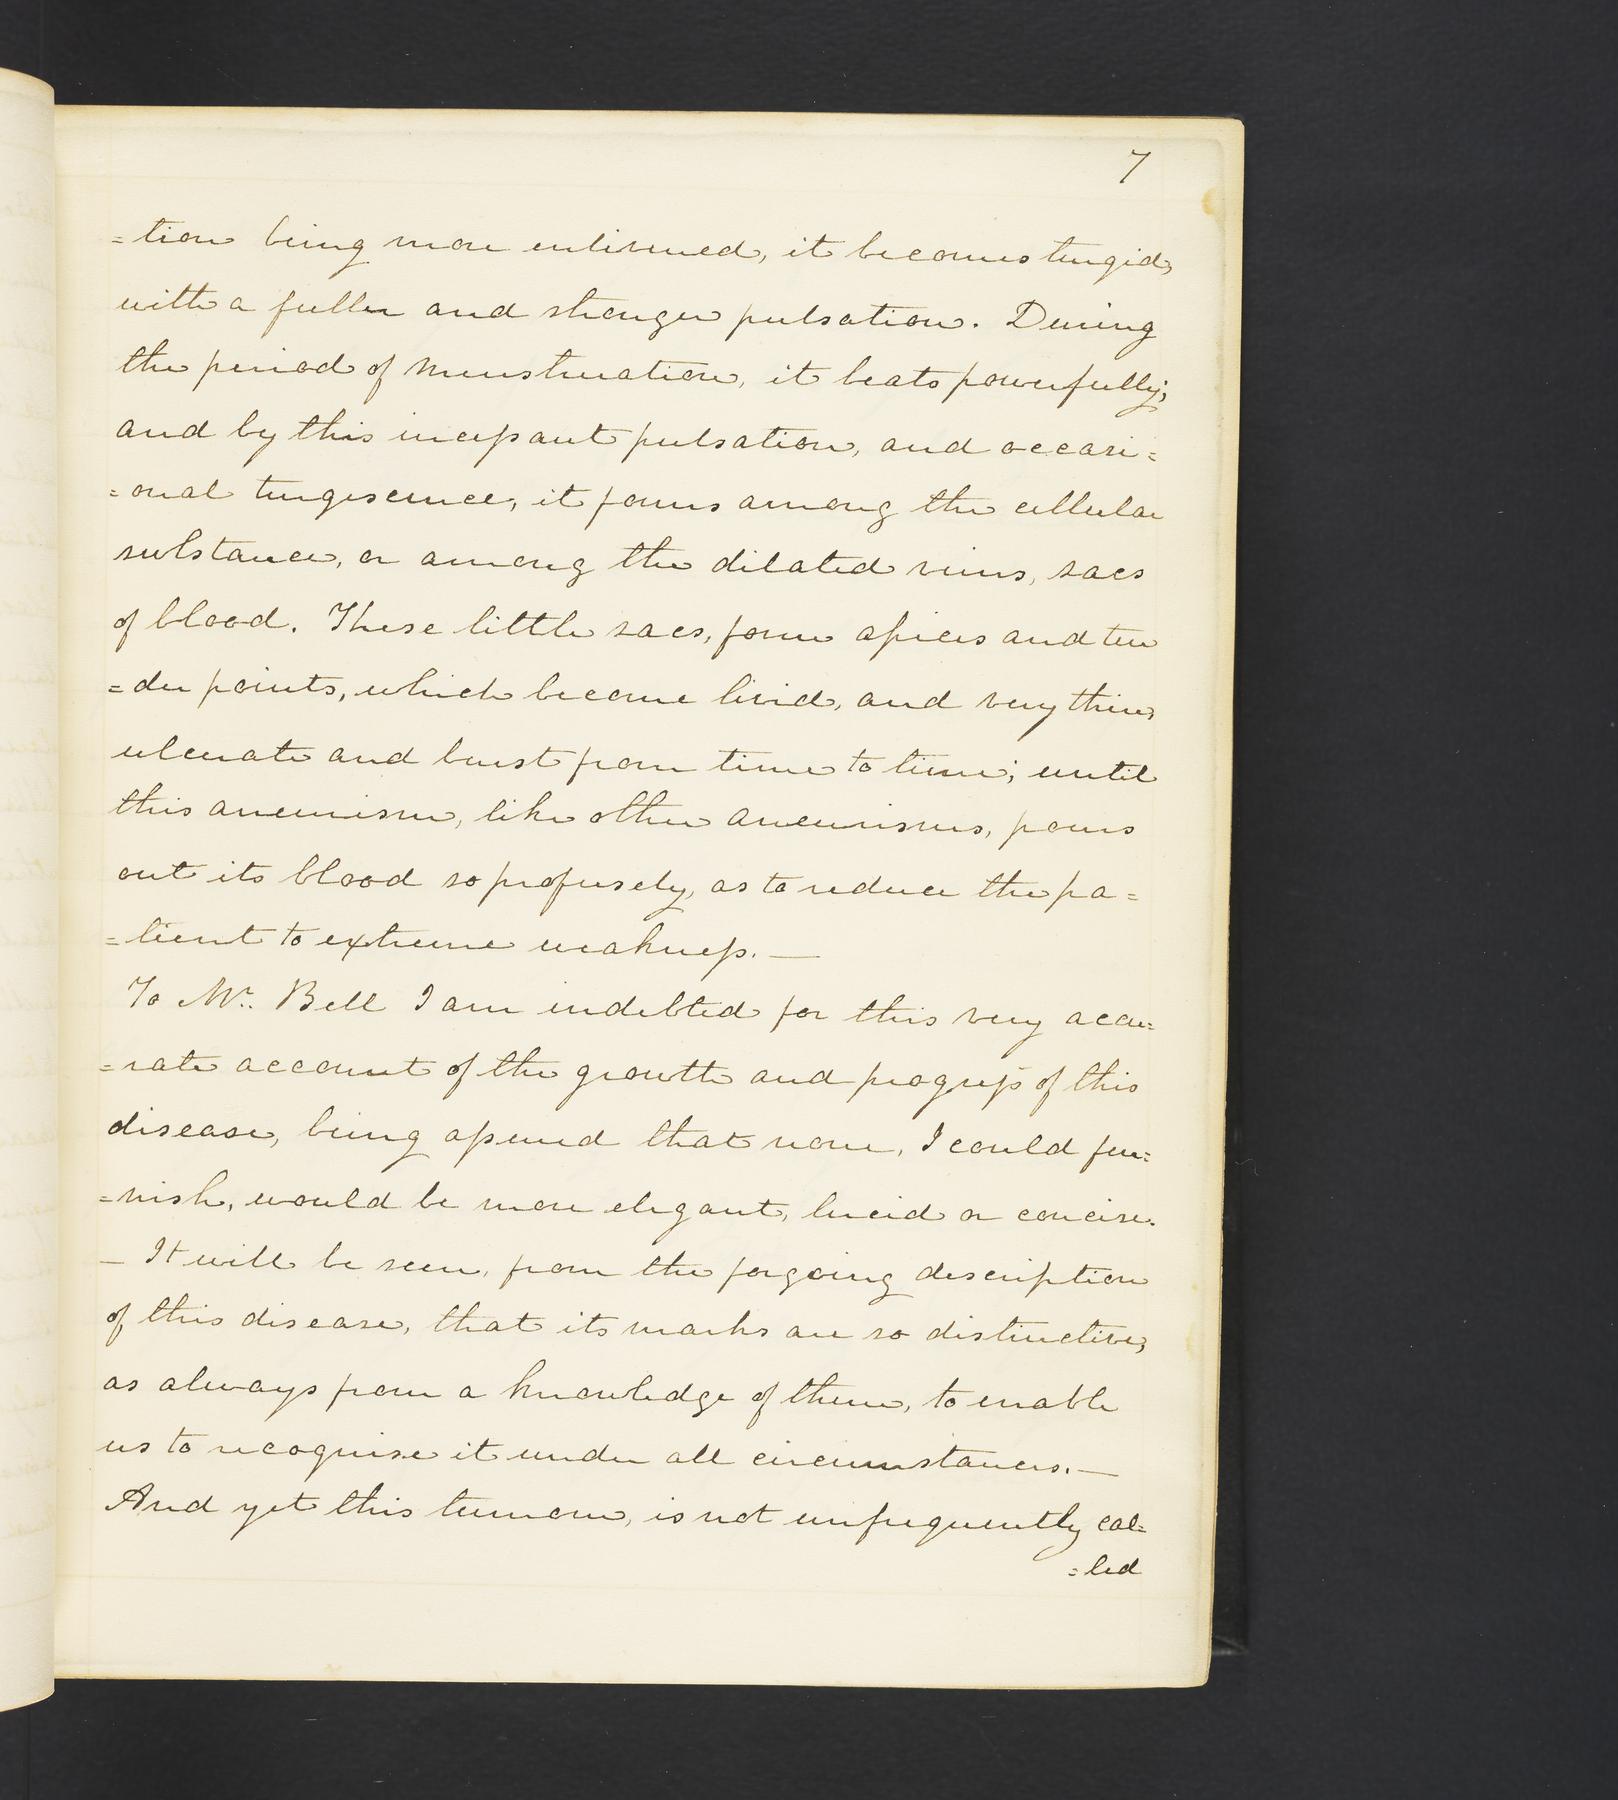 7
=tion being more enlivened, it becomes turgid,
with a fuller and stronger pulsation. During
the period of menstruation, it beats powerfully;
and by this incessant pulsation, and occasi=
=onal turgescence, it forms among the cellular
substance, or among the dilated veins, sacs
of blood. These little sacs, form apices and ten
=der points, which become livid, and very thin,
ulcerate and burst from time to time; until
this aneurism, like other aneurisms, pours
out its blood so profusely, as to reduce the pa=
=tient to extreme weakness. —
To Mr. Bell I am indebted for this very accu=
=rate account of the growth and progress of this
disease, being assured that none, I could fur=
=nish, would be more elegant, lucid or concise.
— It will be seen, from the forgoing description
of this disease, that its marks are so distinctive,
as always from a knowledge of them, to enable
us to recognise it under all circumstances. —
And yet this tumour, is not unfrequently cal=
=led